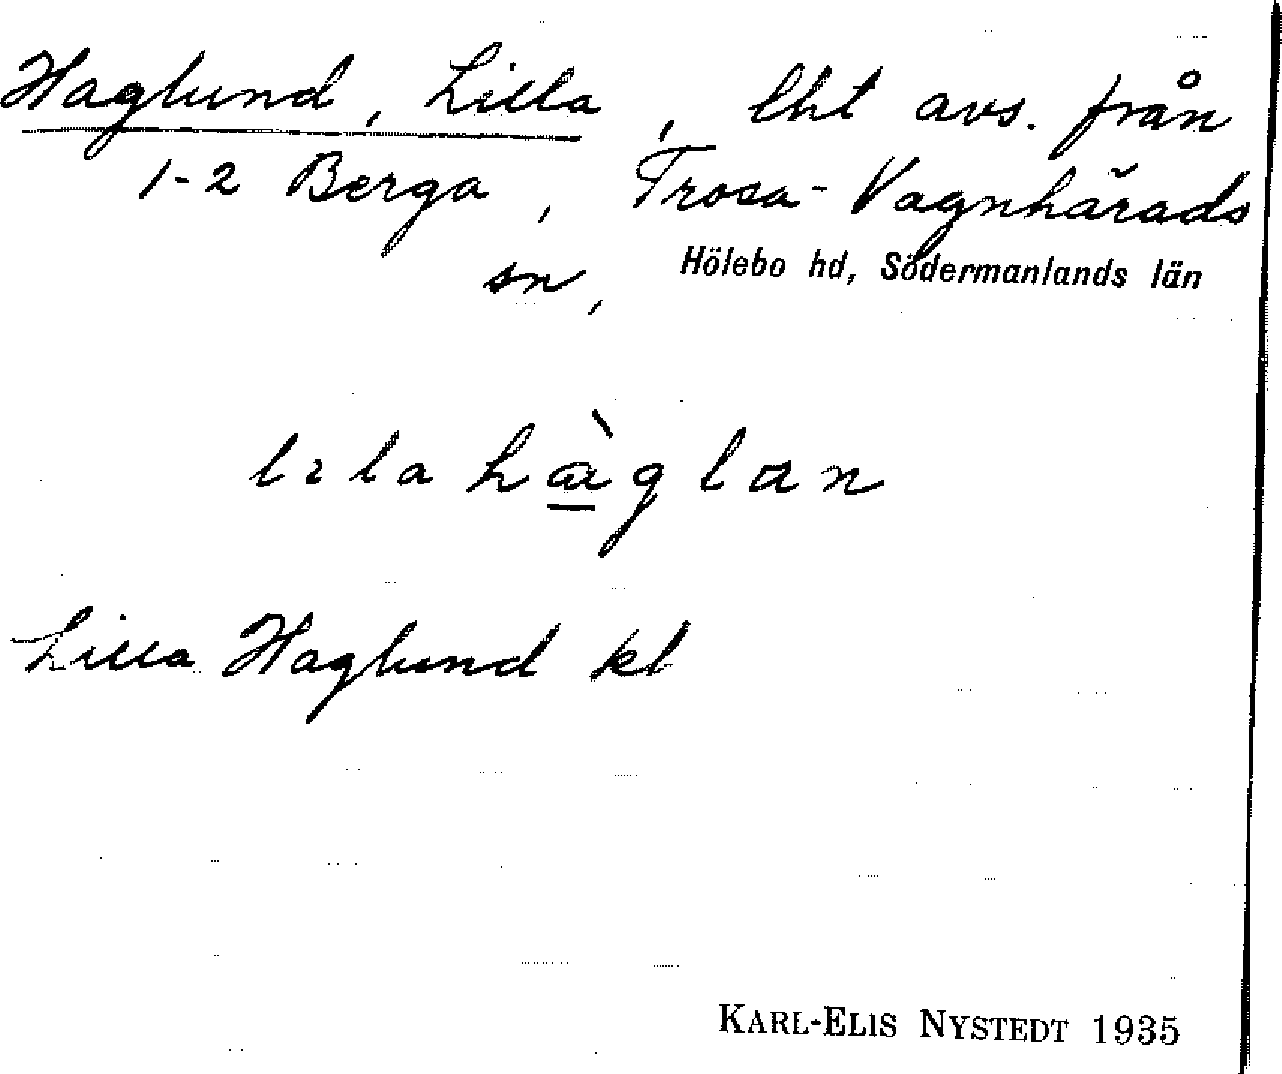 Haglund, Lilla, lht avs. från
1-2 Berga, Trosa-Vagnhärads
sn, Hölebo hd, Södermanlands län
Lilla Haglund kl
KARL-ELIS NYSTEDT 1935